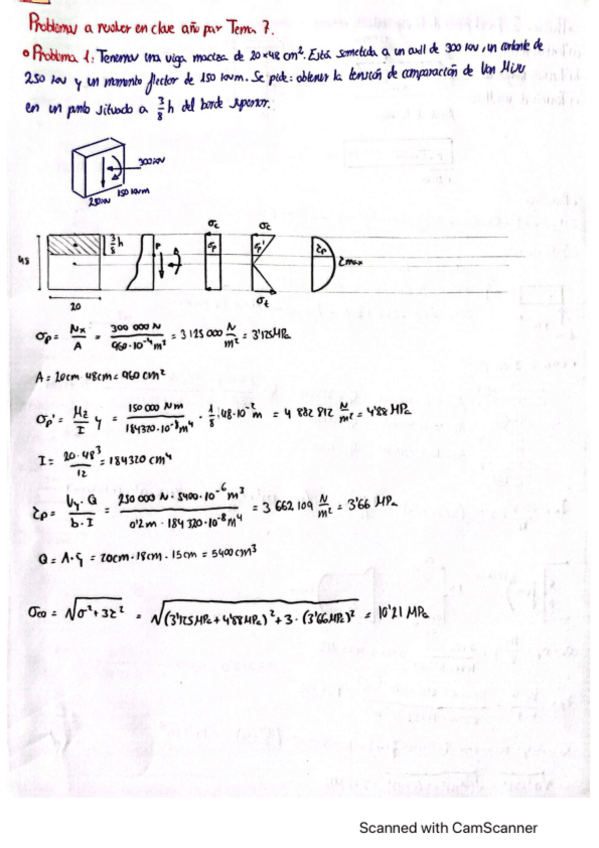 Problemas a resolver en clase año par Tema 7.
• Problema 1: Tenemos una viga maciza de 20×48 cm². Está sometida a un axil de 300 kN, un cortante de
250 kN y un momento flector de 150 kNm. Se pide: obtener la tensión de comparación de Von Mises
en un punto situado a 3/8 h del borde superior.
300 kN
150 kNm
250 kN
48
3/8 h
P
σc
σp
σc
σp'
σt
τp
τmax
20
σp = Nx/A = 300 000 N / 960·10⁻⁴ m² = 3 125 000 N/m² = 3'125 MPa
A = 20cm · 48cm = 960 cm²
σp' = Mz/I y = 150 000 Nm / 184320·10⁻⁸ m⁴ · 1/8 · 48·10⁻² m = 4 882 812 N/m² = 4'88 MPa
I = 20·48³/12 = 184320 cm⁴
τp = Vy·Q / b·I = 250 000 N · 5400·10⁻⁶ m³ / 0'2 m · 184 320·10⁻⁸ m⁴ = 3 662 109 N/m² = 3'66 MPa
Q = A·ȳ = 20cm · 18cm · 15cm = 5400 cm³
σco = √σ² + 3τ² = √(3'125 MPa + 4'88 MPa)² + 3 · (3'66 MPa)² = 10'21 MPa
Scanned with CamScanner